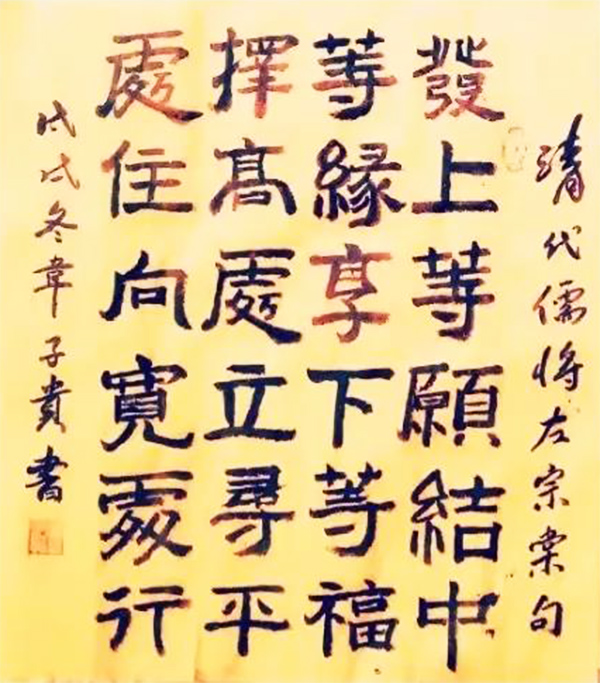 清代儒将左宗棠句
發上等願結中
等緣享下等福
擇高處立尋平
處住向寬處行
戊戌冬韋子貴書